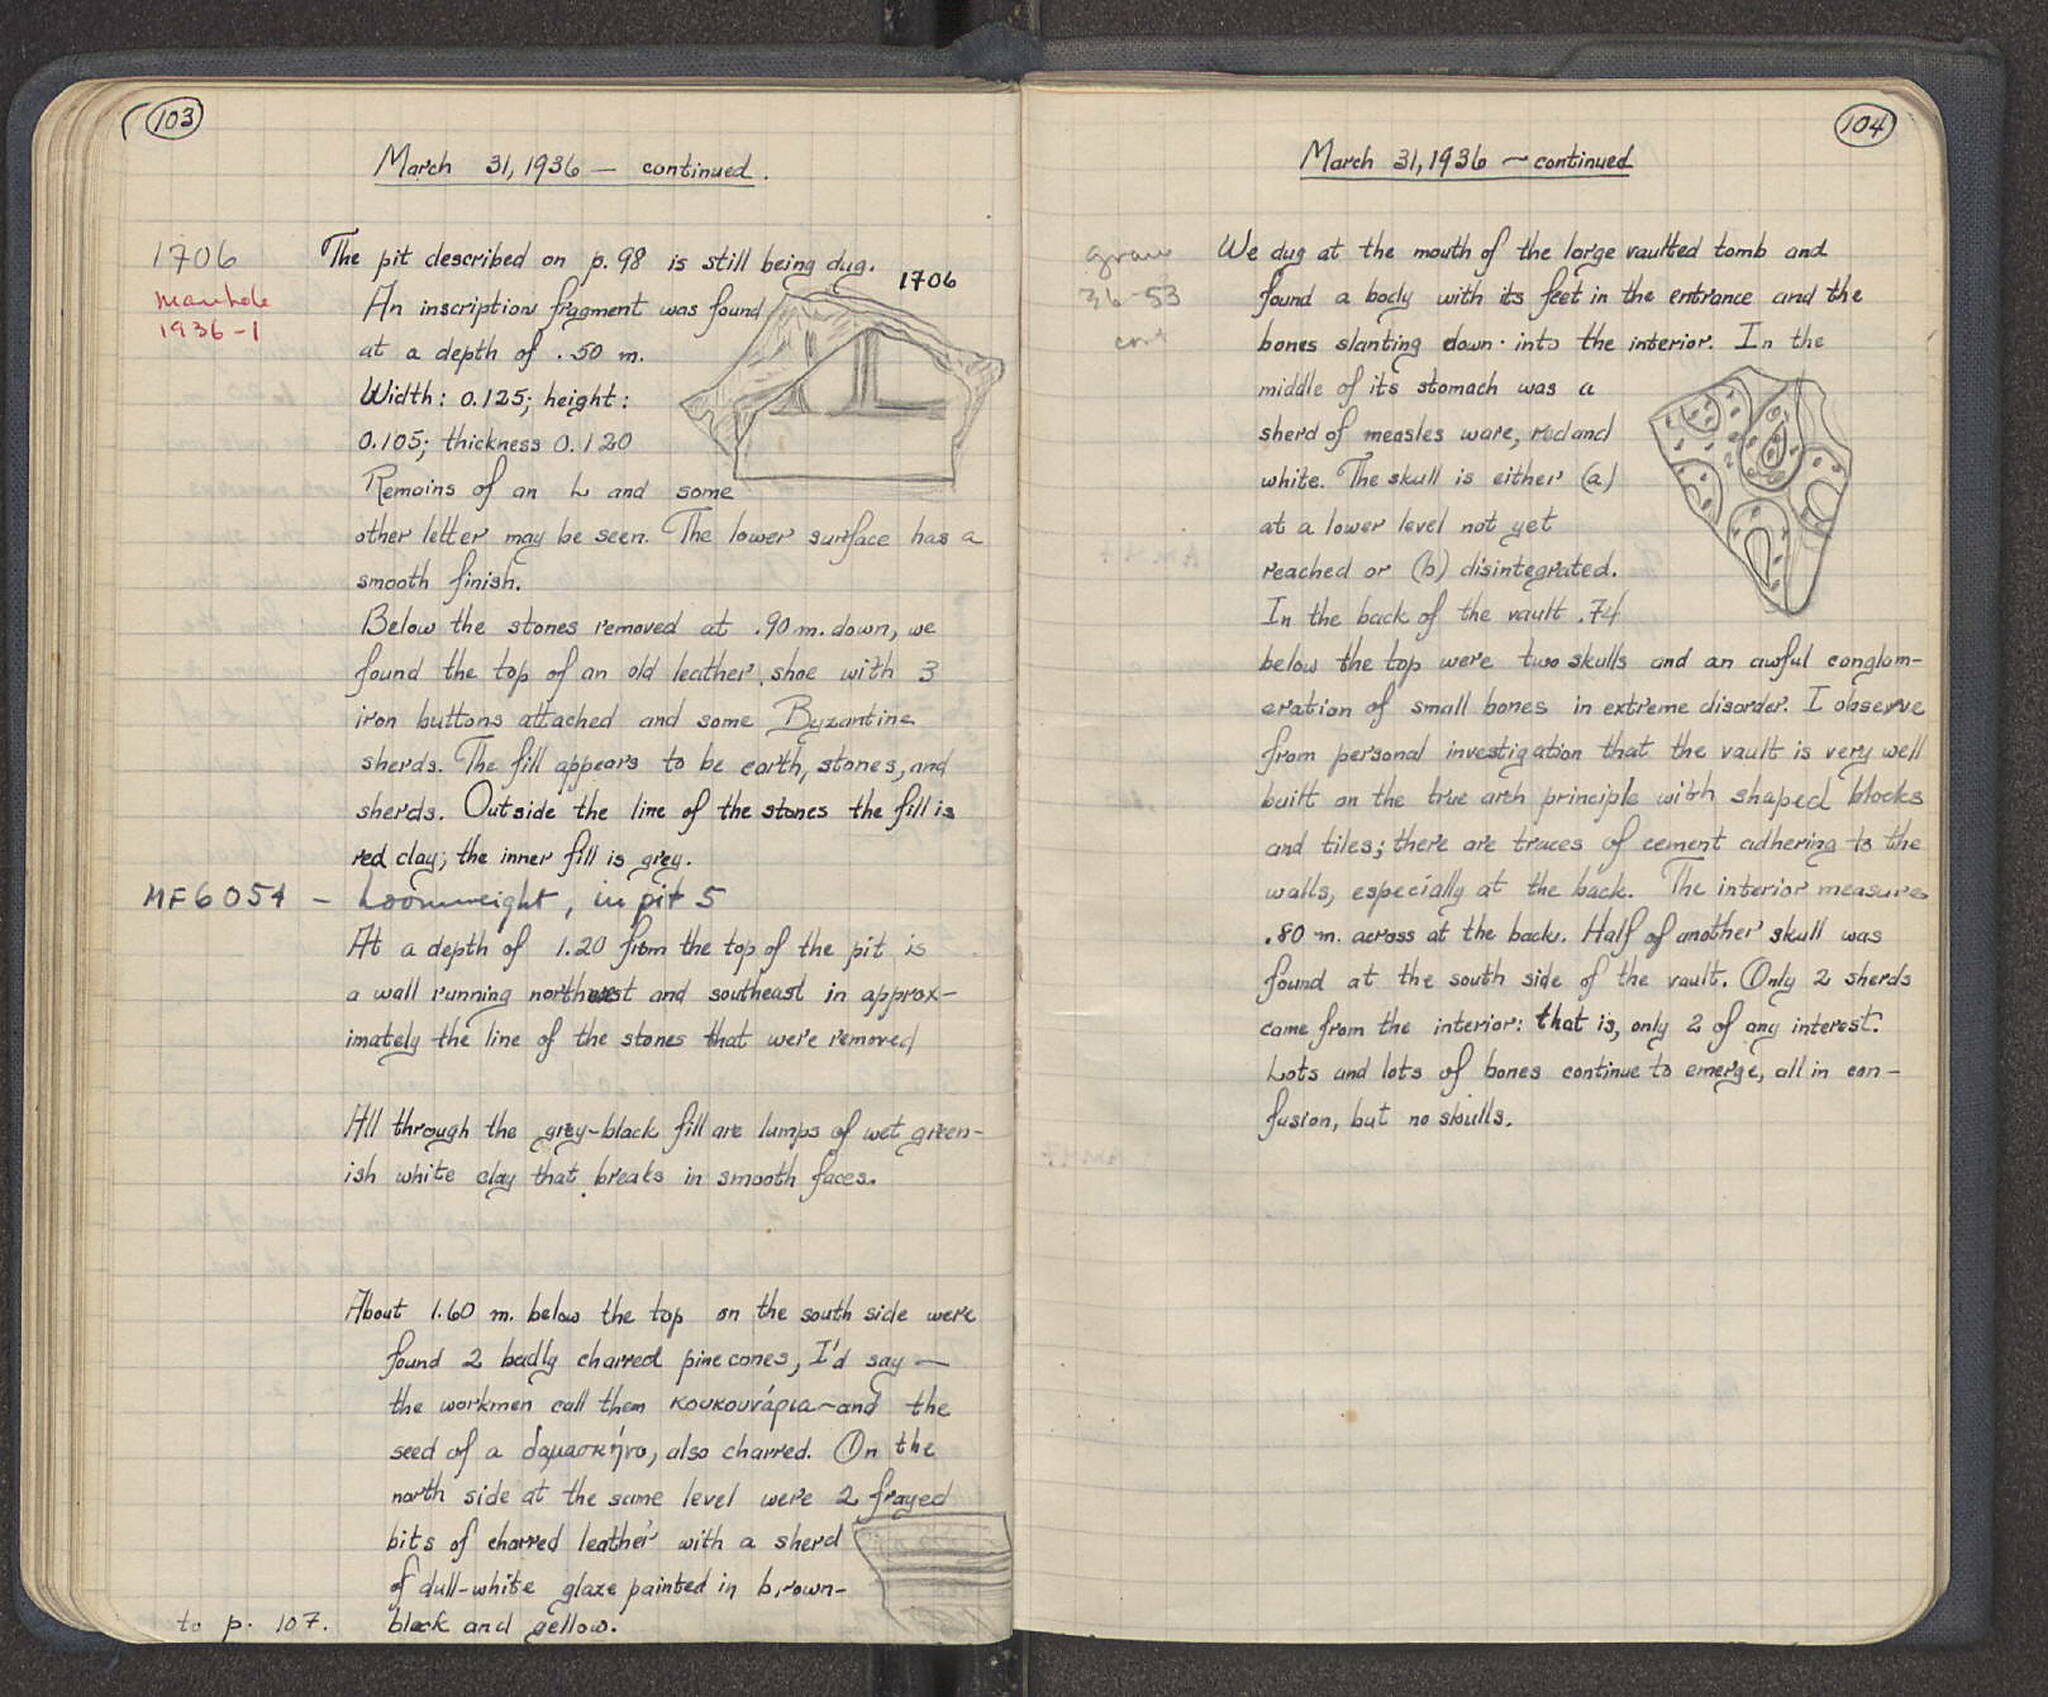 103
March 31, 1936 — continued.
1706
The pit described on p. 98 is still being dug.
1706
manhole
1936-1
An inscription fragment was found
at a depth of .50 m.
Width: 0.125; height:
0.105; thickness 0.120
Remains of an L and some
other letter may be seen. The lower surface has a
smooth finish.
Below the stones removed at .90 m. down, we
found the top of an old leather shoe with 3
iron buttons attached and some Byzantine
sherds. The fill appears to be earth, stones, and
sherds. Outside the line of the stones the fill is
red clay; the inner fill is grey.
MF 6054 – Loomweight, in pit 5
At a depth of 1.20 from the top of the pit is
a wall running northwest and southeast in approx-
imately the line of the stones that were removed
All through the grey-black fill are lumps of wet green-
ish white clay that breaks in smooth faces.
About 1.60 m. below the top on the south side were
found 2 badly charred pine cones, I'd say —
the workmen call them κουκουνάρια – and the
seed of a δαμασκήνο, also charred. On the
north side at the same level were 2 frayed
bits of charred leather with a sherd
of dull-white glaze painted in brown-
black and yellow.
to p. 107.
104
March 31, 1936 – continued
grave
36-53
cont
We dug at the mouth of the large vaulted tomb and
found a body with its feet in the entrance and the
bones slanting down into the interior. In the
middle of its stomach was a
sherd of measles ware, red and
white. The skull is either (a)
at a lower level not yet
reached or (b) disintegrated.
In the back of the vault .74
below the top were two skulls and an awful conglom-
eration of small bones in extreme disorder. I observe
from personal investigation that the vault is very well
built on the true arch principle with shaped blocks
and tiles; there are traces of cement adhering to the
walls, especially at the back. The interior measures
.80 m. across at the back. Half of another skull was
found at the south side of the vault. Only 2 sherds
came from the interior: that is, only 2 of any interest.
Lots and lots of bones continue to emerge, all in con-
fusion, but no skulls.